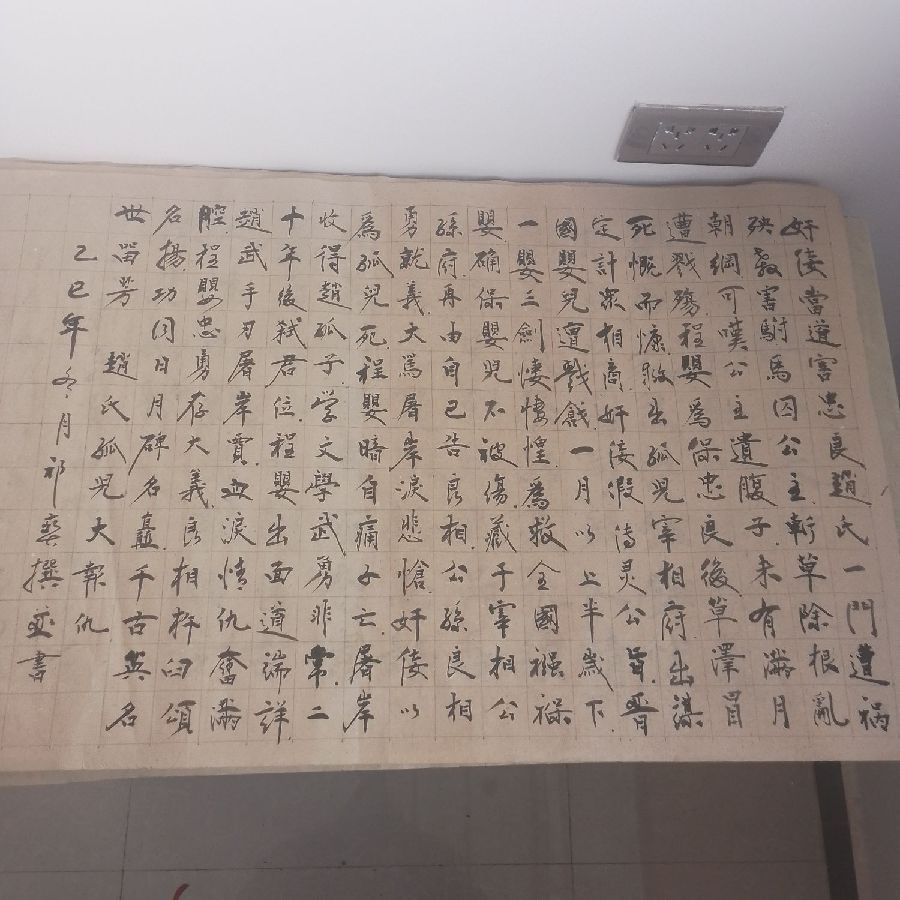 奸佞當道害忠良趙氏一門遭禍
殃殺害駙馬囚公主斬草除根亂
朝綱可嘆公主遺腹子未有滿月
遭戮殤程嬰爲保忠良後草澤冒
死慨而慷救出孤兒宰相府出謀
定計衆相商奸佞假傳灵公旨晋
國嬰兒遭戮戧一月以上半歲下
一嬰三劍悽悽惶爲救全國襁褓
嬰确保嬰児不被傷藏于宰相公
孫府再由自己告良相公孫良相
勇就義大罵屠岸淚悲愴奸佞以
爲孤兒死程嬰暗自痛子亡屠岸
收得趙孤子學文學武勇非常二
十年後弒君位程嬰出面道端詳
趙武手刃屠岸賈血淚情仇奮滿
腔程嬰忠勇存大義良相杵臼頌
名揚功同日月碑名矗千古英名
世留芳 趙氏孤兒大報仇
乙巳年冬月祁撰並書